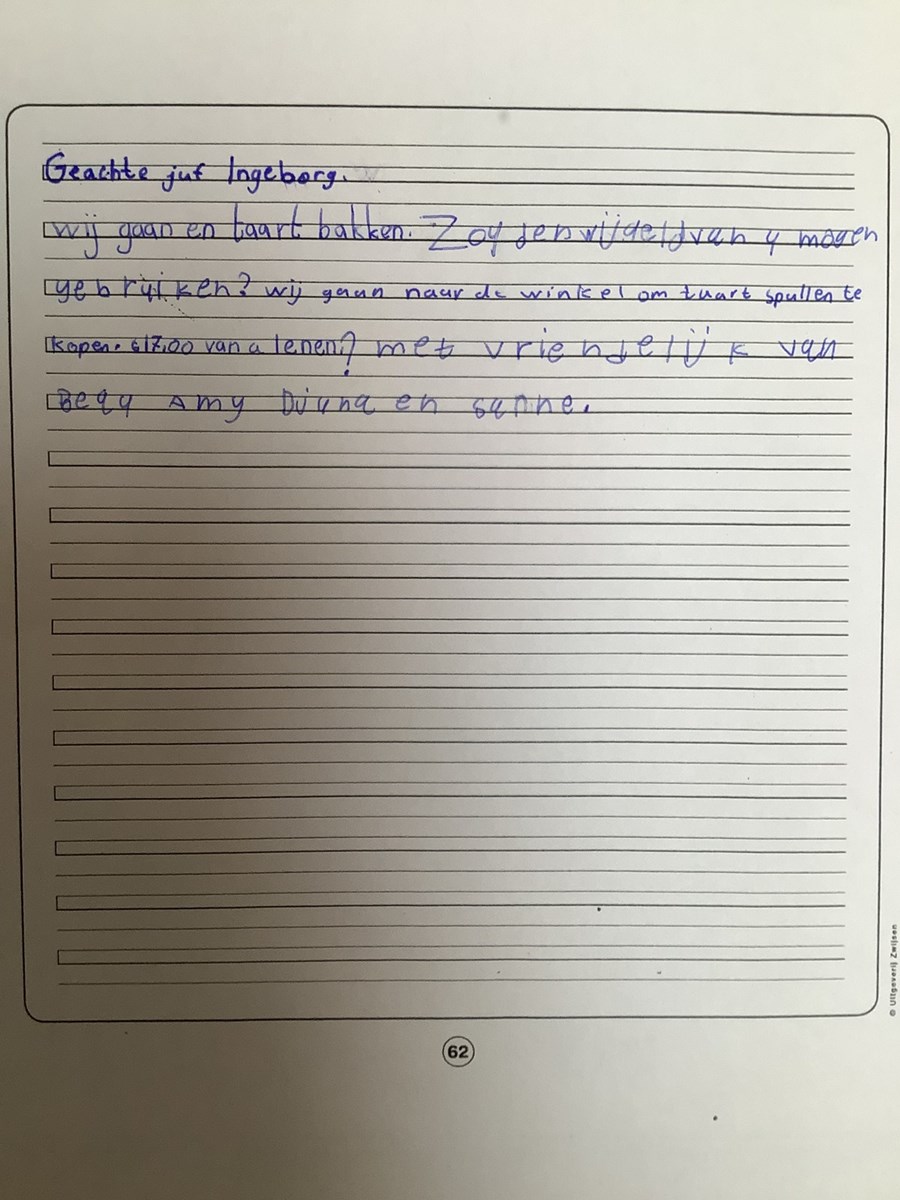 Geachte juf Ingeborg.
wij gaan en taart bakken. Zou den wij geld van u mogen
gebruiken? wij gaan naar de winkel om taart spullen te
kopen. €17,00 van u lenen? met vriendelijk van
Amy Diana en sanne.
© Uitgeverij Zwijsen
62